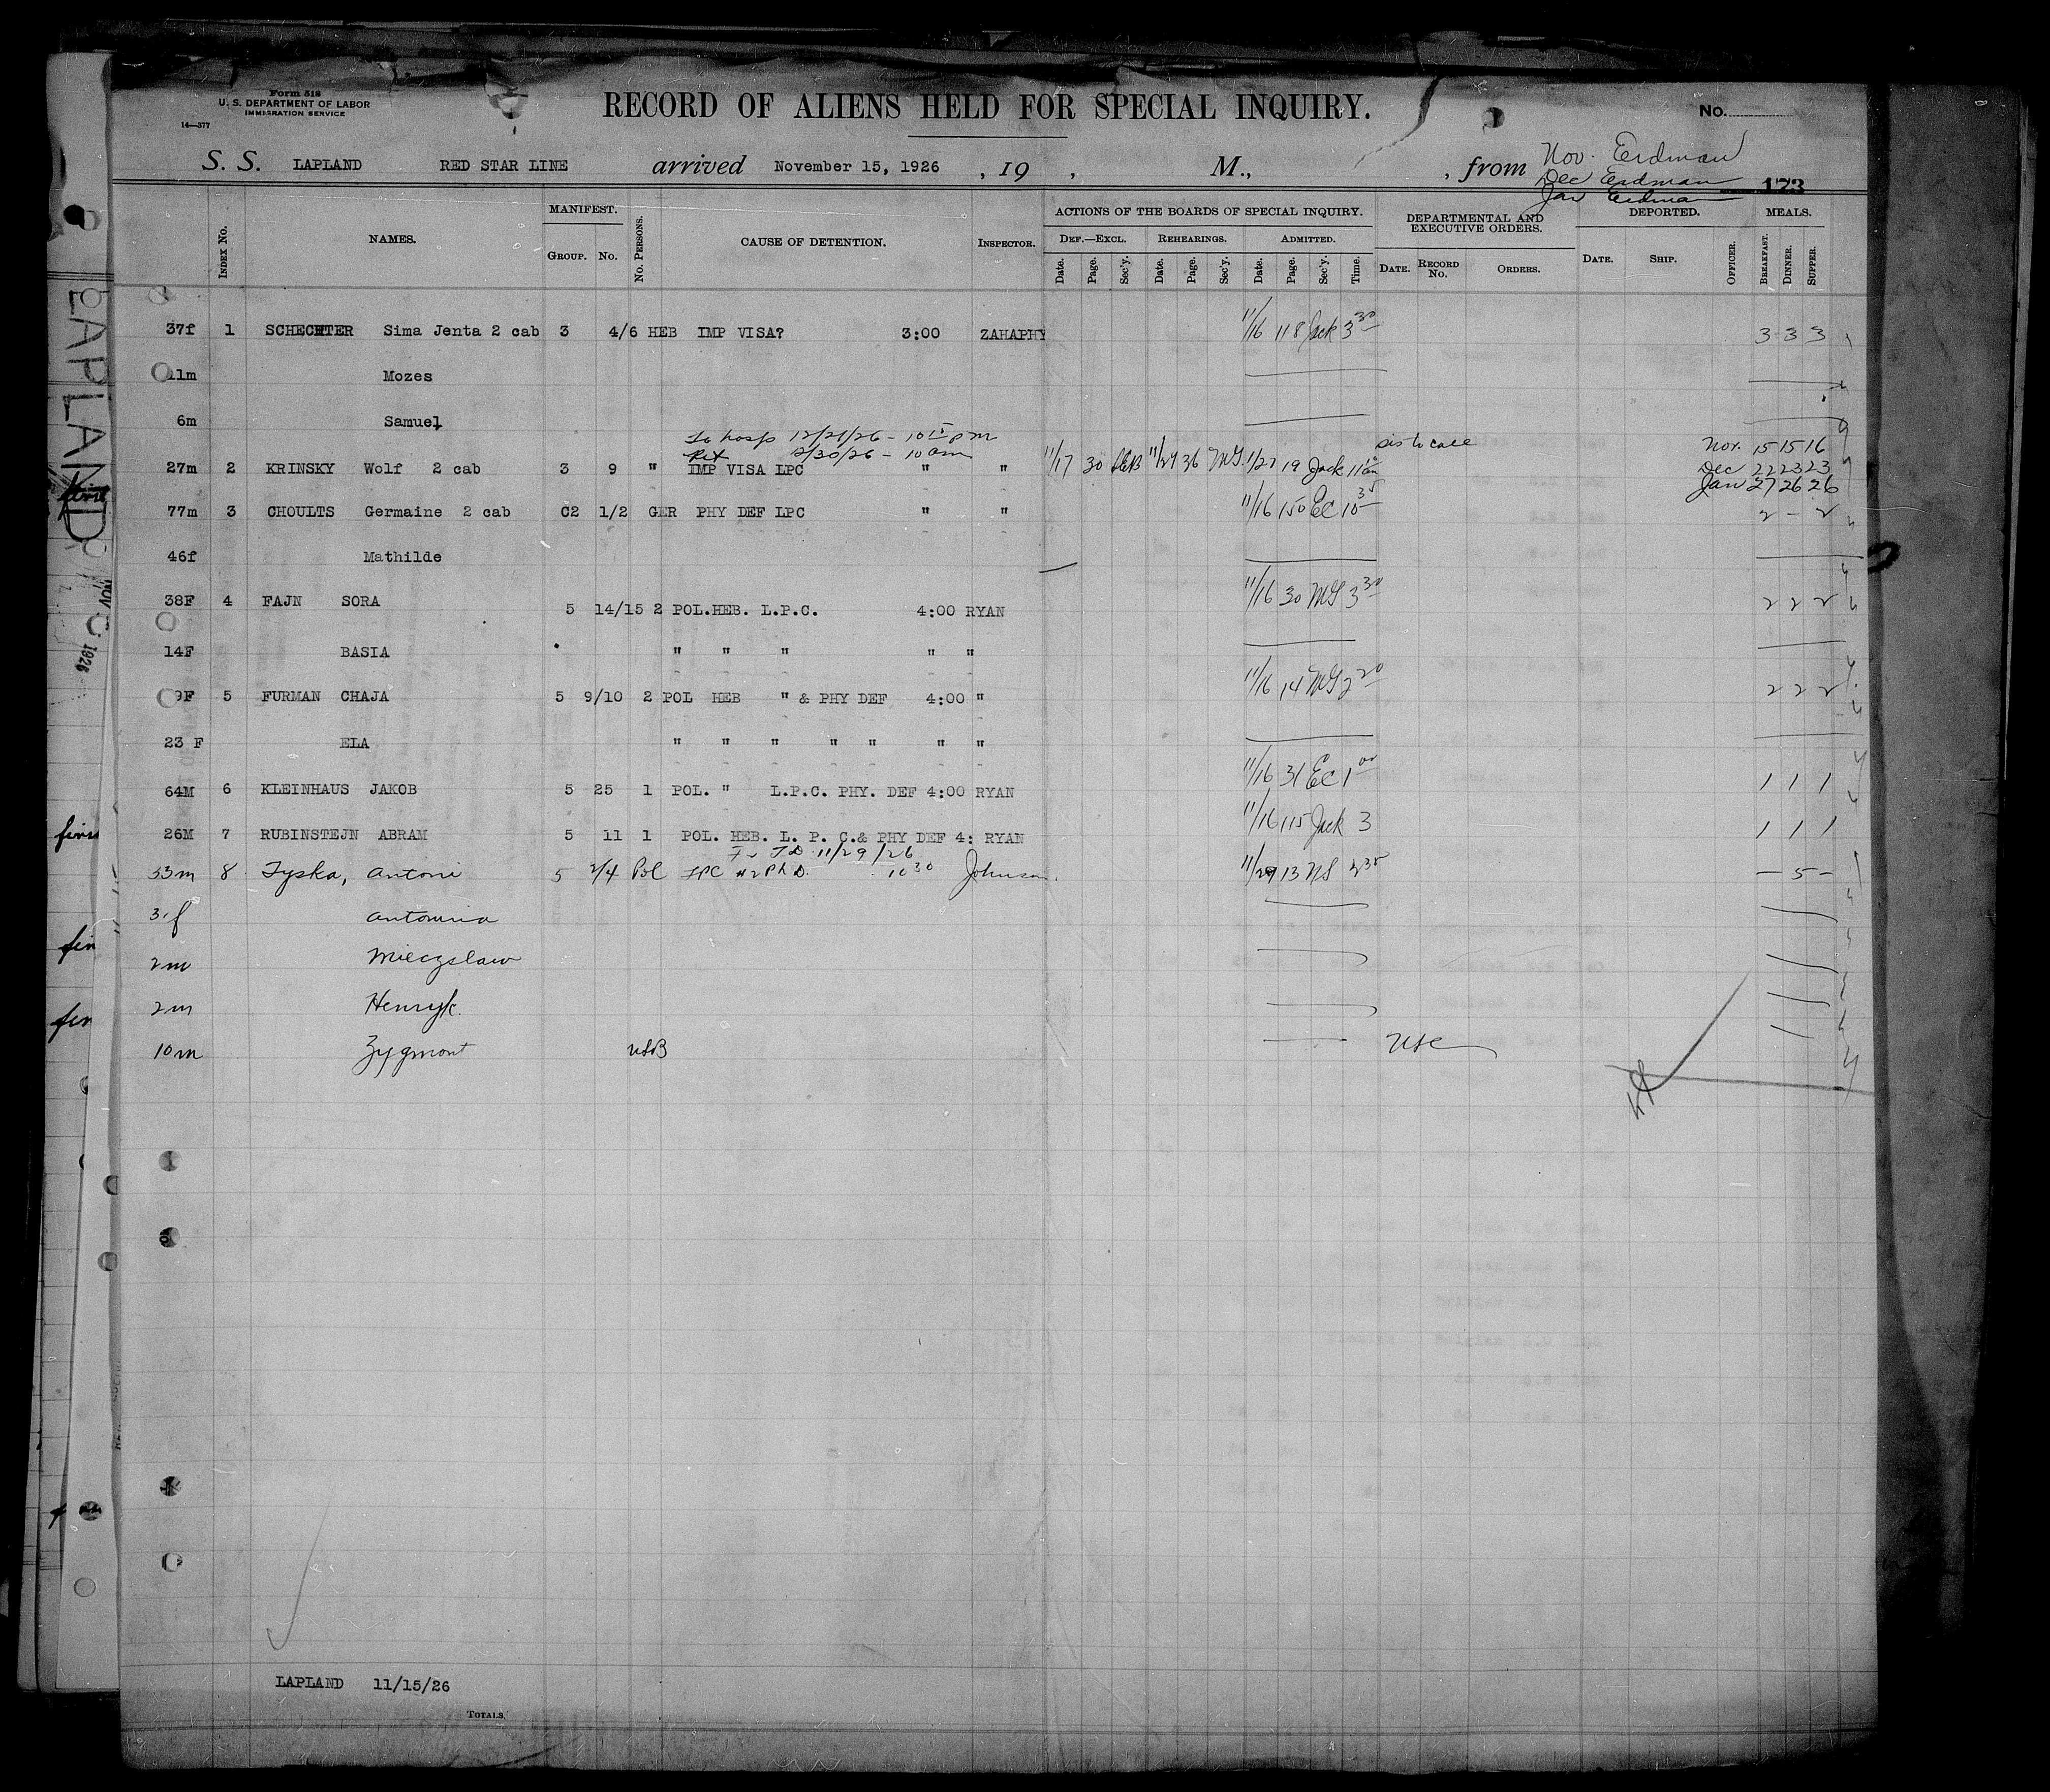 Form 518
U. S. DEPARTMENT OF LABOR
IMMIGRATION SERVICE
14—377
RECORD OF ALIENS HELD FOR SPECIAL INQUIRY.
No.
S. S. LAPLAND RED STAR LINE arrived November 15, 1926 , 19 , M., , from
Nov. Erdman
Dec Erdman
Jan Erdman
173
INDEX No. NAMES. MANIFEST. GROUP. No. No. PERSONS. CAUSE OF DETENTION. INSPECTOR.
ACTIONS OF THE BOARDS OF SPECIAL INQUIRY. DEF.—EXCL. REHEARINGS. ADMITTED.
Date. Page. Sec'y. Date. Page. Sec'y. Date. Page. Sec'y. Time.
DEPARTMENTAL AND EXECUTIVE ORDERS. DATE. RECORD No. ORDERS.
DEPORTED. DATE. SHIP. OFFICER. MEALS. BREAKFAST. DINNER. SUPPER.
37f 1 SCHECHTER Sima Jenta 2 cab 3 4/6 HEB IMP VISA? 3:00 ZAHAPHY 11/16 118 Jack 3 30 3 3 3
11m Mozes
6m Samuel
To hosp 12/21/26 - 10 15 pm
Ret 12/30/26 - 10 am
27m 2 KRINSKY Wolf 2 cab 3 9 " IMP VISA LPC " " 11/17 30 11/29 36 MG 1/27 19 Jack 11 am sis to call
Nov. 15 15 16
Dec 22 23 23
Jan 27 26 26
77m 3 CHOULTS Germaine 2 cab C2 1/2 GER PHY DEF LPC " " 11/16 150 EC 10 35 2 - 2
46f Mathilde
38F 4 FAJN SORA 5 14/15 2 POL.HEB. L.P.C. 4:00 RYAN 11/16 30 MG 3 30 2 2 2
14F BASIA " " " " "
9F 5 FURMAN CHAJA 5 9/10 2 POL HEB " & PHY DEF 4:00 " 11/16 14 MG 2 20 2 2 2
23 F ELA " " " " " " "
64M 6 KLEINHAUS JAKOB 5 25 1 POL. " L.P.C. PHY. DEF 4:00 RYAN 11/16 31 EC 1 00 1 1 1
26M 7 RUBINSTEJN ABRAM 5 11 1 POL. HEB. L. P. C.& PHY DEF 4: RYAN 11/16 115 Jack 3 1 1 1
11/29/26
33m 8 Tyska, Antoni 5 Pol LPC 10 30 Johnson 11/29 13 - 5 -
Antonina
2m Mieczslaw
2m Henryk.
10m Zygmont USB USC
LAPLAND 11/15/26
TOTALS.
LAPLAND
NOV
1926